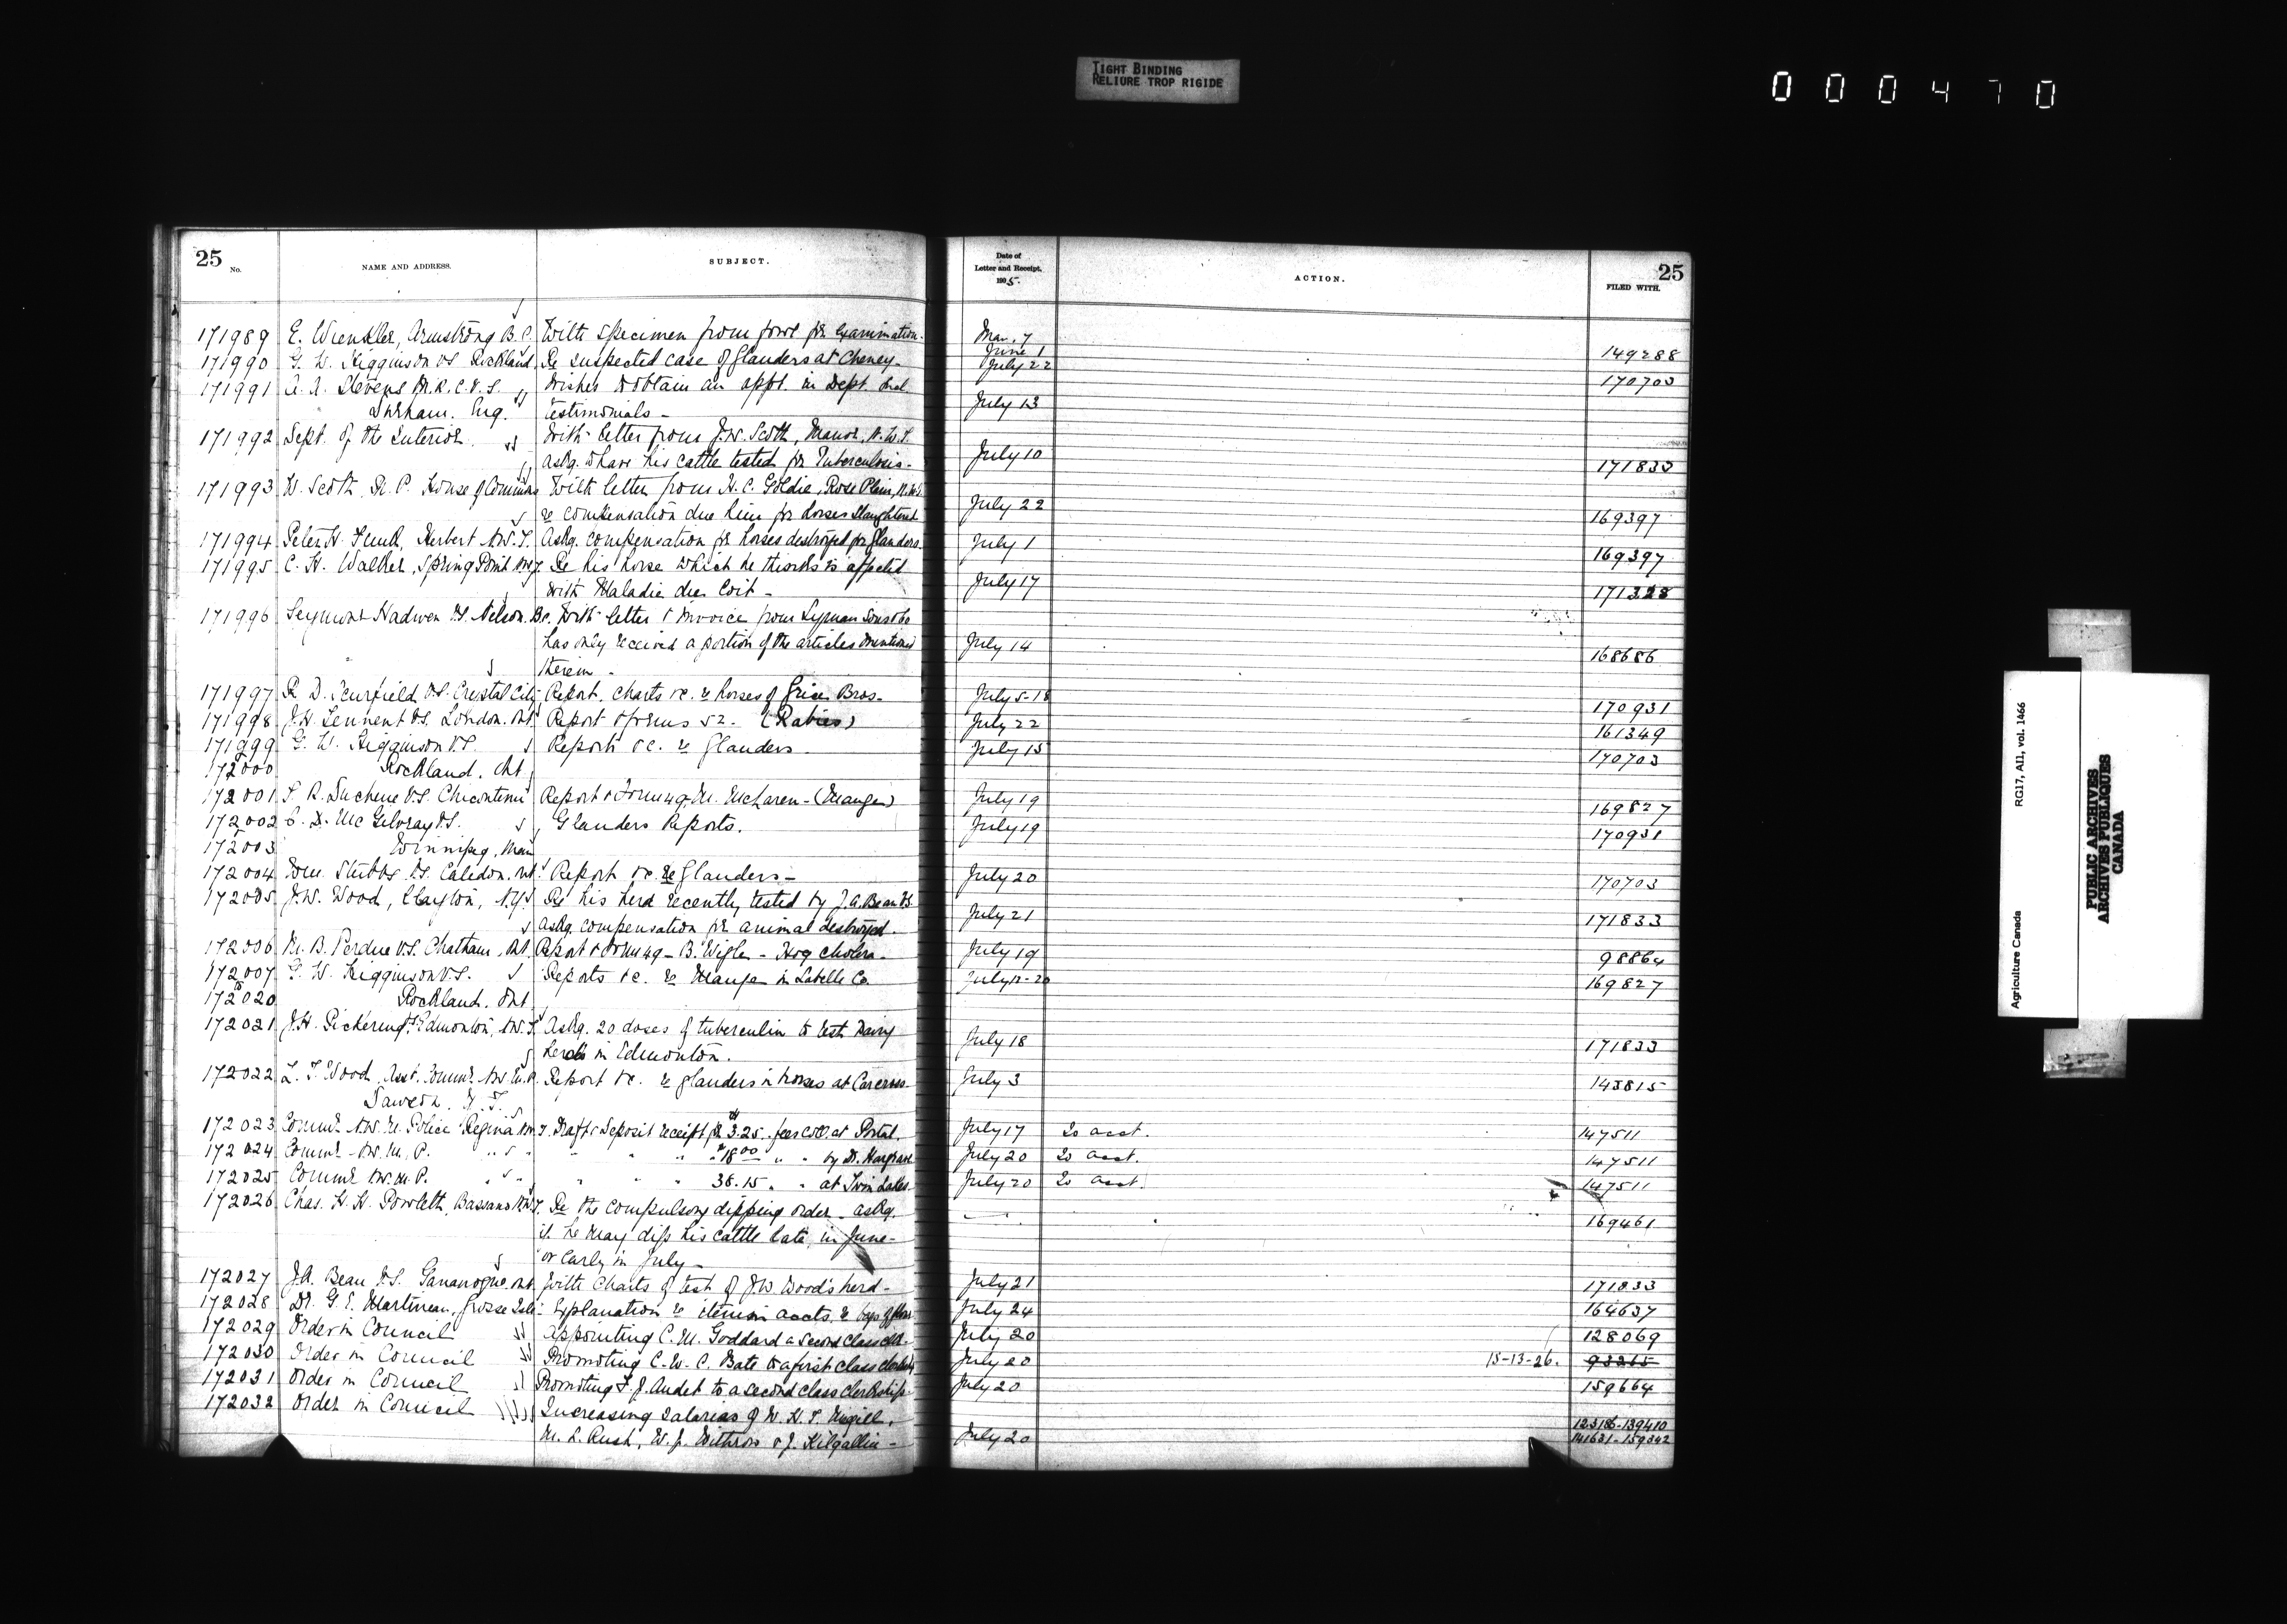 TIGHT BINDING
RELIURE TROP RIGIDE
000470
25 No. NAME AND ADDRESS. SUBJECT. Date of Letter and Receipt, 1905. ACTION. FILED WITH. 25
171989 E. Winkler, Armstrong B.C. With specimen from fowl for examination. Mar. 7
June 1 149288
171990 G. W. Higginson V.S. Rockland Re suspected case of Glanders at Cheney- July 22 170703
171991 A. A. Stevens M.R.C.V.S. Wishes to obtain an appt. in Dept. Incl.
Durham. Eng. testimonials - July 13
171992 Dept. of the Interior With letter from J.W. Scott, Manor, N.W.T.
askg. to have his cattle tested for Tuberculosis- July 10 171833
171993 W. Scott, M.P. House of Commons With letter from H. C. Goldie, Rose Plain, N.W.T.
re compensation due him for horses slaughtered July 22 169397
171994 Peter H. Funk, Herbert N.W.T. Askg. compensation for horses destroyed for Glanders. July 1 169397
171995 C. H. Walker, Spring Point N.W.T. Re his horse which he thinks is affected
with Maladie du Coit - July 17 171328
171996 Seymour Hadwen V.S. Nelson. B.C. With letter & invoice from Lyman Sons & Co
has only received a portion of the articles mentioned July 14
therein - 168686
171997 R. D. Scurfield V.S. Crystal City Report, charts &c. re horses of Grice Bros- July 5-18 170931
171998 J.H. Tennent V.S. London. Ont. Report & forms 52. (Rabies) July 22 161349
171999 G. W. Higginson V.S. Reports &c. re Glanders July 15 170703
172000 Rockland. Ont
172001 Duchene V.S. Chicoutimi Report & Form 49, M. McLaren - (Mange) July 19 169827
172002 C. D. McGilvray V.S. Glanders Reports. July 19 170931
172003 Winnipeg, Man
172004 Wm. Stubbs V.S. Caledon. Ont. Report &c. re Glanders- July 20 170703
172005 J.W. Wood, Clayton, N.Y. Re his herd recently tested by J.A. Bean V.S.
askg. compensation for animal destroyed. July 21 171833
172006 M. B. Perdue V.S. Chatham, Ont. Report & Form 49 - B. Wigle - Hog cholera- July 19 98864
172007 G. W. Higginson V.S. Reports &c. re Mange in Labelle Co. July 12-20 169827
to
172020 Rockland. Ont
172021 J.H. Pickering Edmonton, N.W.T. Askg. 20 doses of tuberculin to test Dairy
herds in Edmonton. July 18 171833
172022 Z. T. Wood, Asst. Commr. N.W.M.P. Report &c. re glanders in horses at Carcross July 3 143815
Dawson. Y.T.
172023 Commr. N.W.M. Police Regina N.W.T. Draft & Deposit receipt for $3.25. fees coll. at Portal. July 17 To acct. 147511
172024 Commr. N.W.M.P. " " " " " $18.00 " " by Dr. Hargrave July 20 To acct. 147511
172025 Commr. N.W.M.P. " " " " 38.15 " " at Twin Lakes- July 20 To acct. 147511
172026 Chas. H. H. Powlett, Bassano N.W.T. Re the compulsory dipping order - askg.
if he may dip his cattle late in June 169461
or early in July -
172027 J.A. Bean V.S. Gananoque Ont With charts of test of J.W. Wood's herd- July 21 171833
172028 Dr. G. E. Martineau, Grosse Isle Explanation re items in accts. re bags of flour July 24 164637
172029 Order in Council Appointing C. M. Goddard a second class clk. July 20 128069
172030 Order in Council Promoting C. W. C. Bate to a first class clerkship July 20 15-13-26. 93265
172031 Order in Council Promoting F. J. Audet to a second class clerkship July 20 159664
172032 Order in Council Increasing salaries of W. H. T. Megill, 123186-139410
M. L. Rush, W. J. Withrow & J. Kilgallin - July 20 141631-159342
Agriculture Canada RG17, AI1, vol. 1466
PUBLIC ARCHIVES
ARCHIVES PUBLIQUES
CANADA